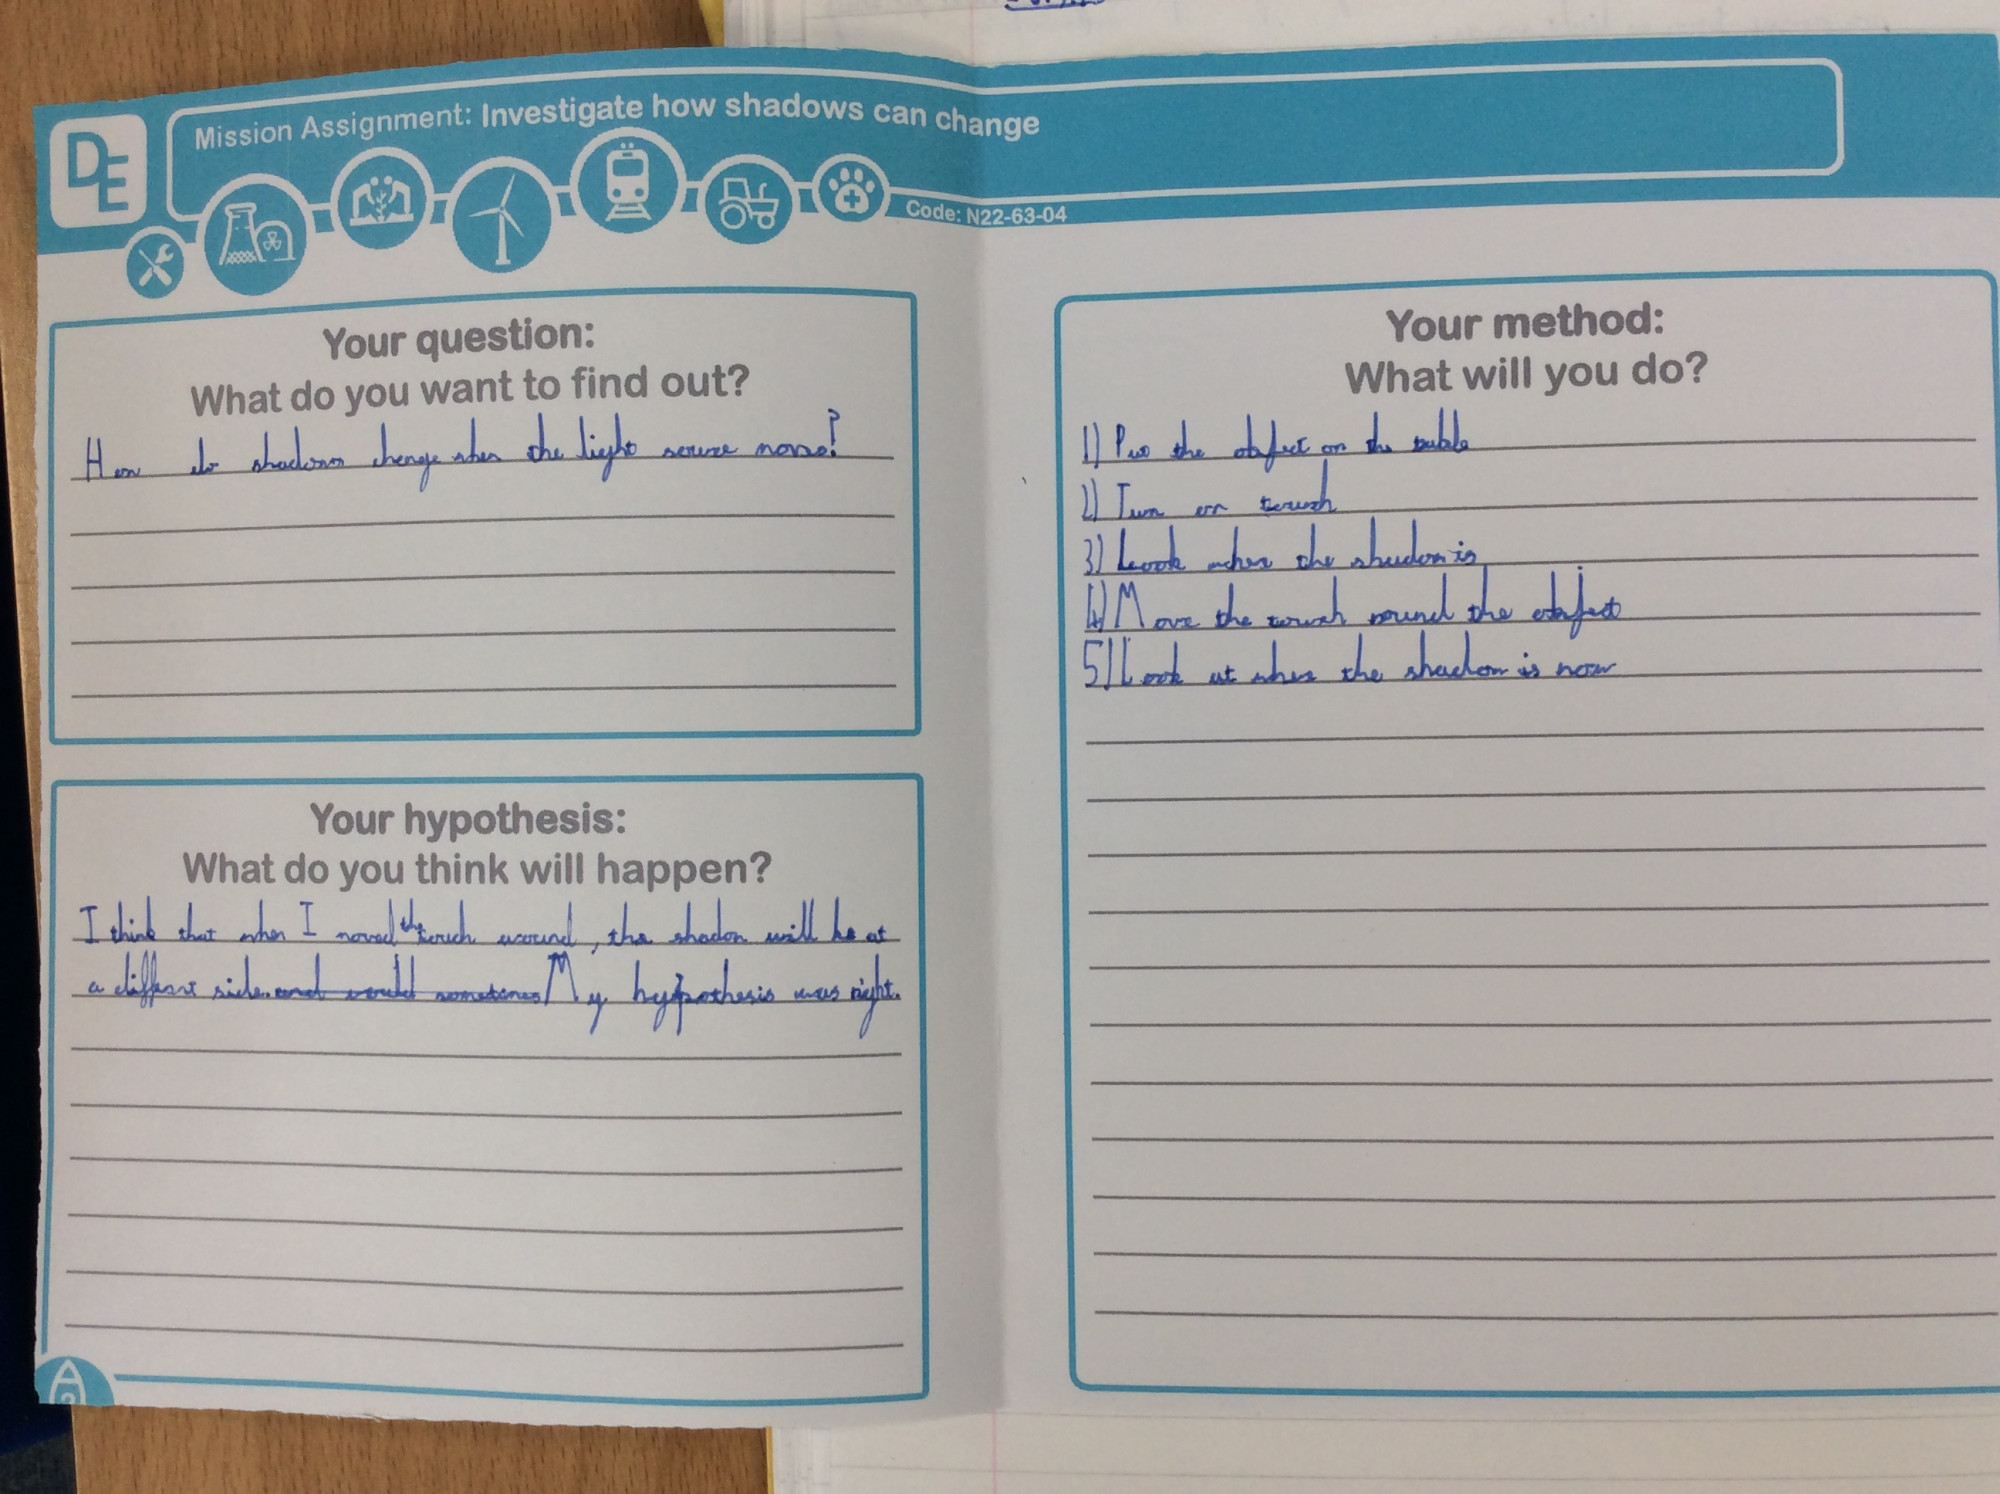 DE
Mission Assignment: Investigate how shadows can change
Code: N22-63-04
Your question:
What do you want to find out?
How do shadows change when the light source moves?
Your hypothesis:
What do you think will happen?
I think that when I moved the torch around, the shadow will be at
a different side. and would sometimes My hypothesis was right.
Your method:
What will you do?
1) Put the object on the table
2) Turn on torch
3) Look where the shadow is
4) Move the torch round the object
5) Look at where the shadow is now